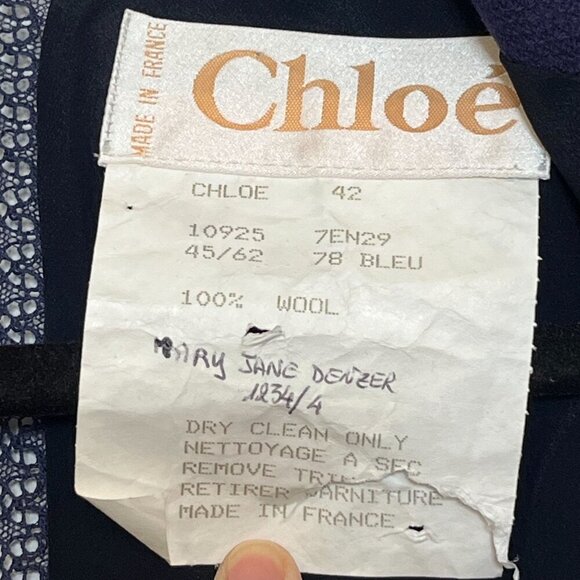 MADE IN FRANCE
Chloé
CHLOE 42
10925 7EN29
45/62 78 BLEU
100% WOOL
MARY JANE DENZER
1234/4
DRY CLEAN ONLY
NETTOYAGE A SEC
REMOVE TRIM
RETIRER GARNITURE
MADE IN FRANCE